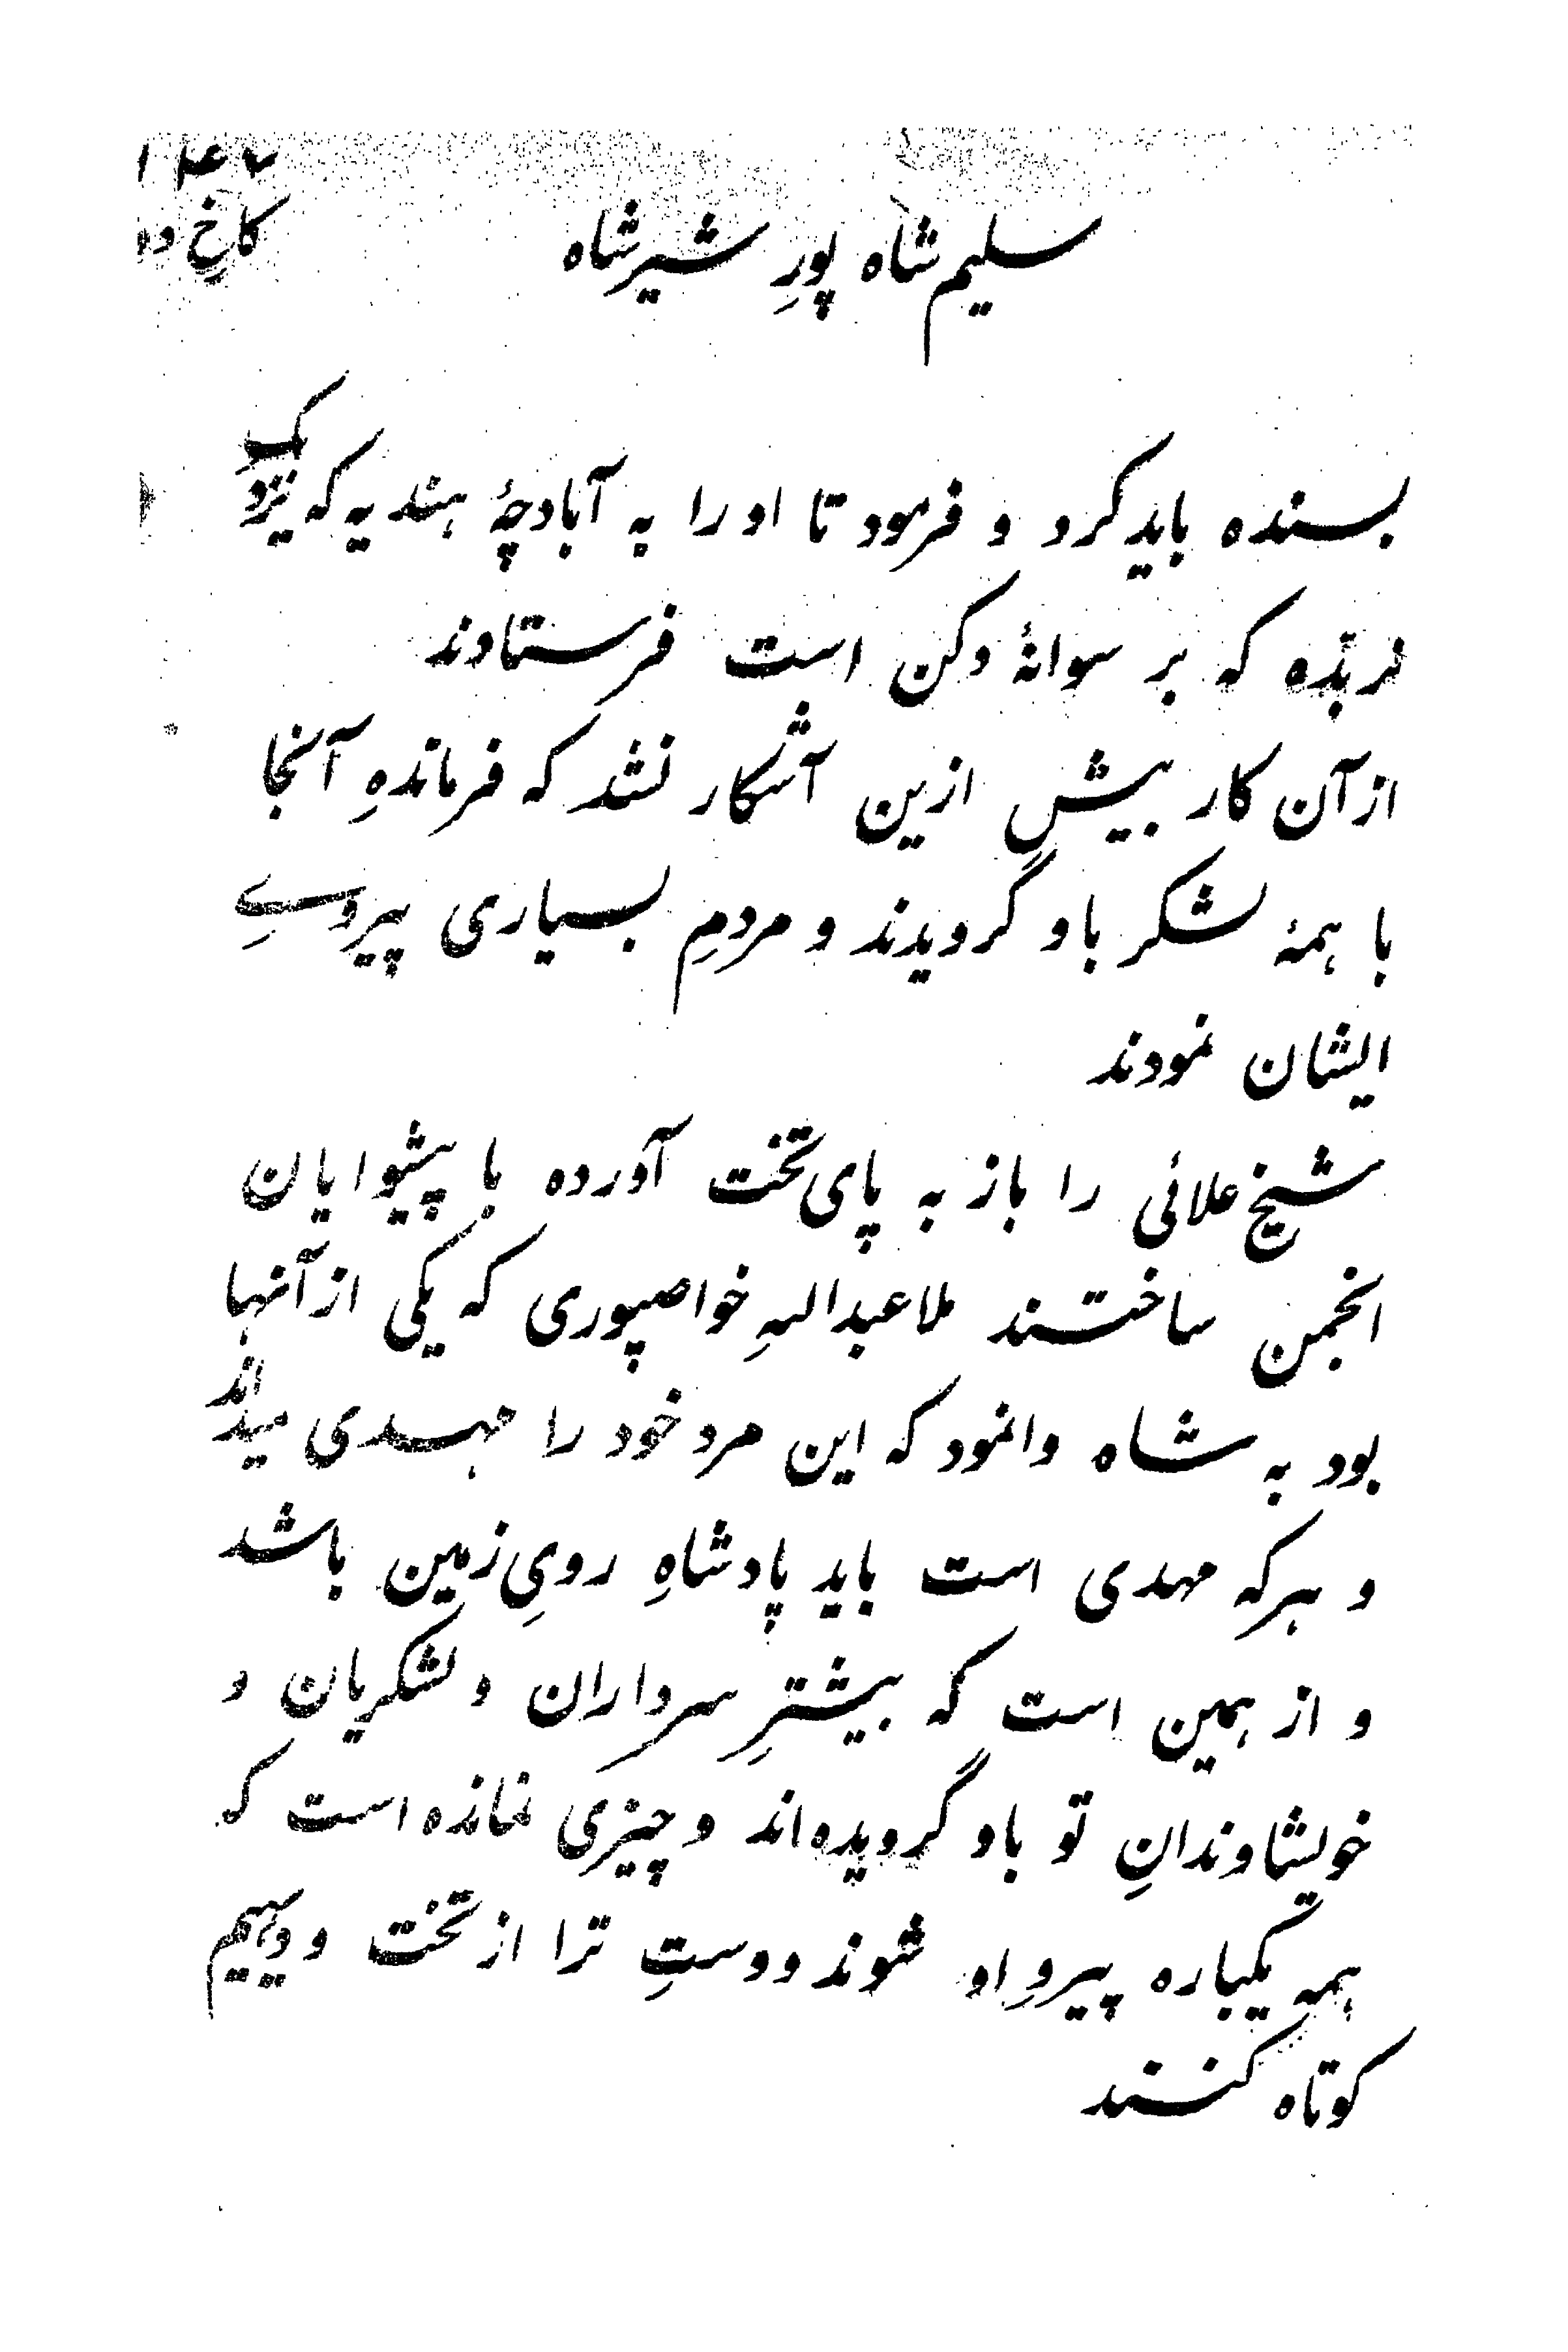 ۱۴۶
کاخ دو
سلیم شاه پورِ شیرشاه
بسنده باید کرد و فرمود تا او را به آبادچهٔ هندیه که نزدیک
نربده که بر سوانهٔ دکن است فرستادند
از آن کار بیش ازین آشکار نشد که فرماندهِ آنجا
با همهٔ لشکر باو گرویدند و مردمِ بسیاری پیروےِ
ایشان نمودند
شیخ علائی را باز به پای تخت آورده با پیشوایان
انجمن ساختند ملا عبداللهِ خواصپوری که یکی از آنها
بود به شاه وانمود که این مرد خود را مهدی میداند
و هرکه مهدی است باید پادشاهِ رویِ زمین باشد
و از همین است که بیشترِ سرداران و لشکریان و
خویشاوندانِ تو باو گرویده‌اند و چیزی نمانده است که
همه یکباره پیروِ او شوند و دستِ ترا از تخت و دیهیم
کوتاه کنند